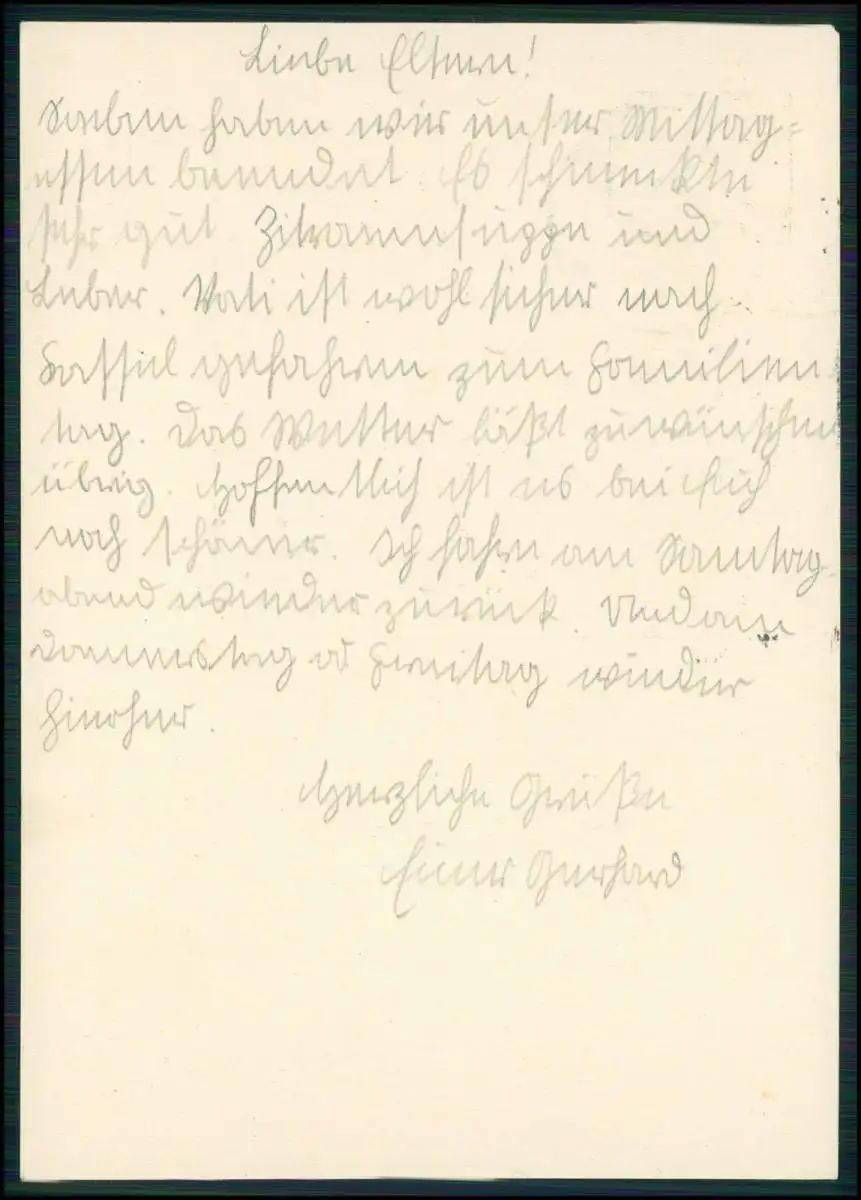 Liebe Eltern!
Soeben haben wir unser Mittag=
essen beendet. Es schmeckte
sehr gut. Zitronensuppe und
Leber. Vati ist wohl sicher nach
Kassel gefahren zum Familien=
tag. Das Wetter läßt zuwünschen
übrig. Hoffentlich ist es bei Euch
noch schöner. Ich fahre am Samtag=
abend wieder zurück. Und am
Donnerstag od Freitag wieder
hierher.
Herzliche Grüße
Euer Gerhard